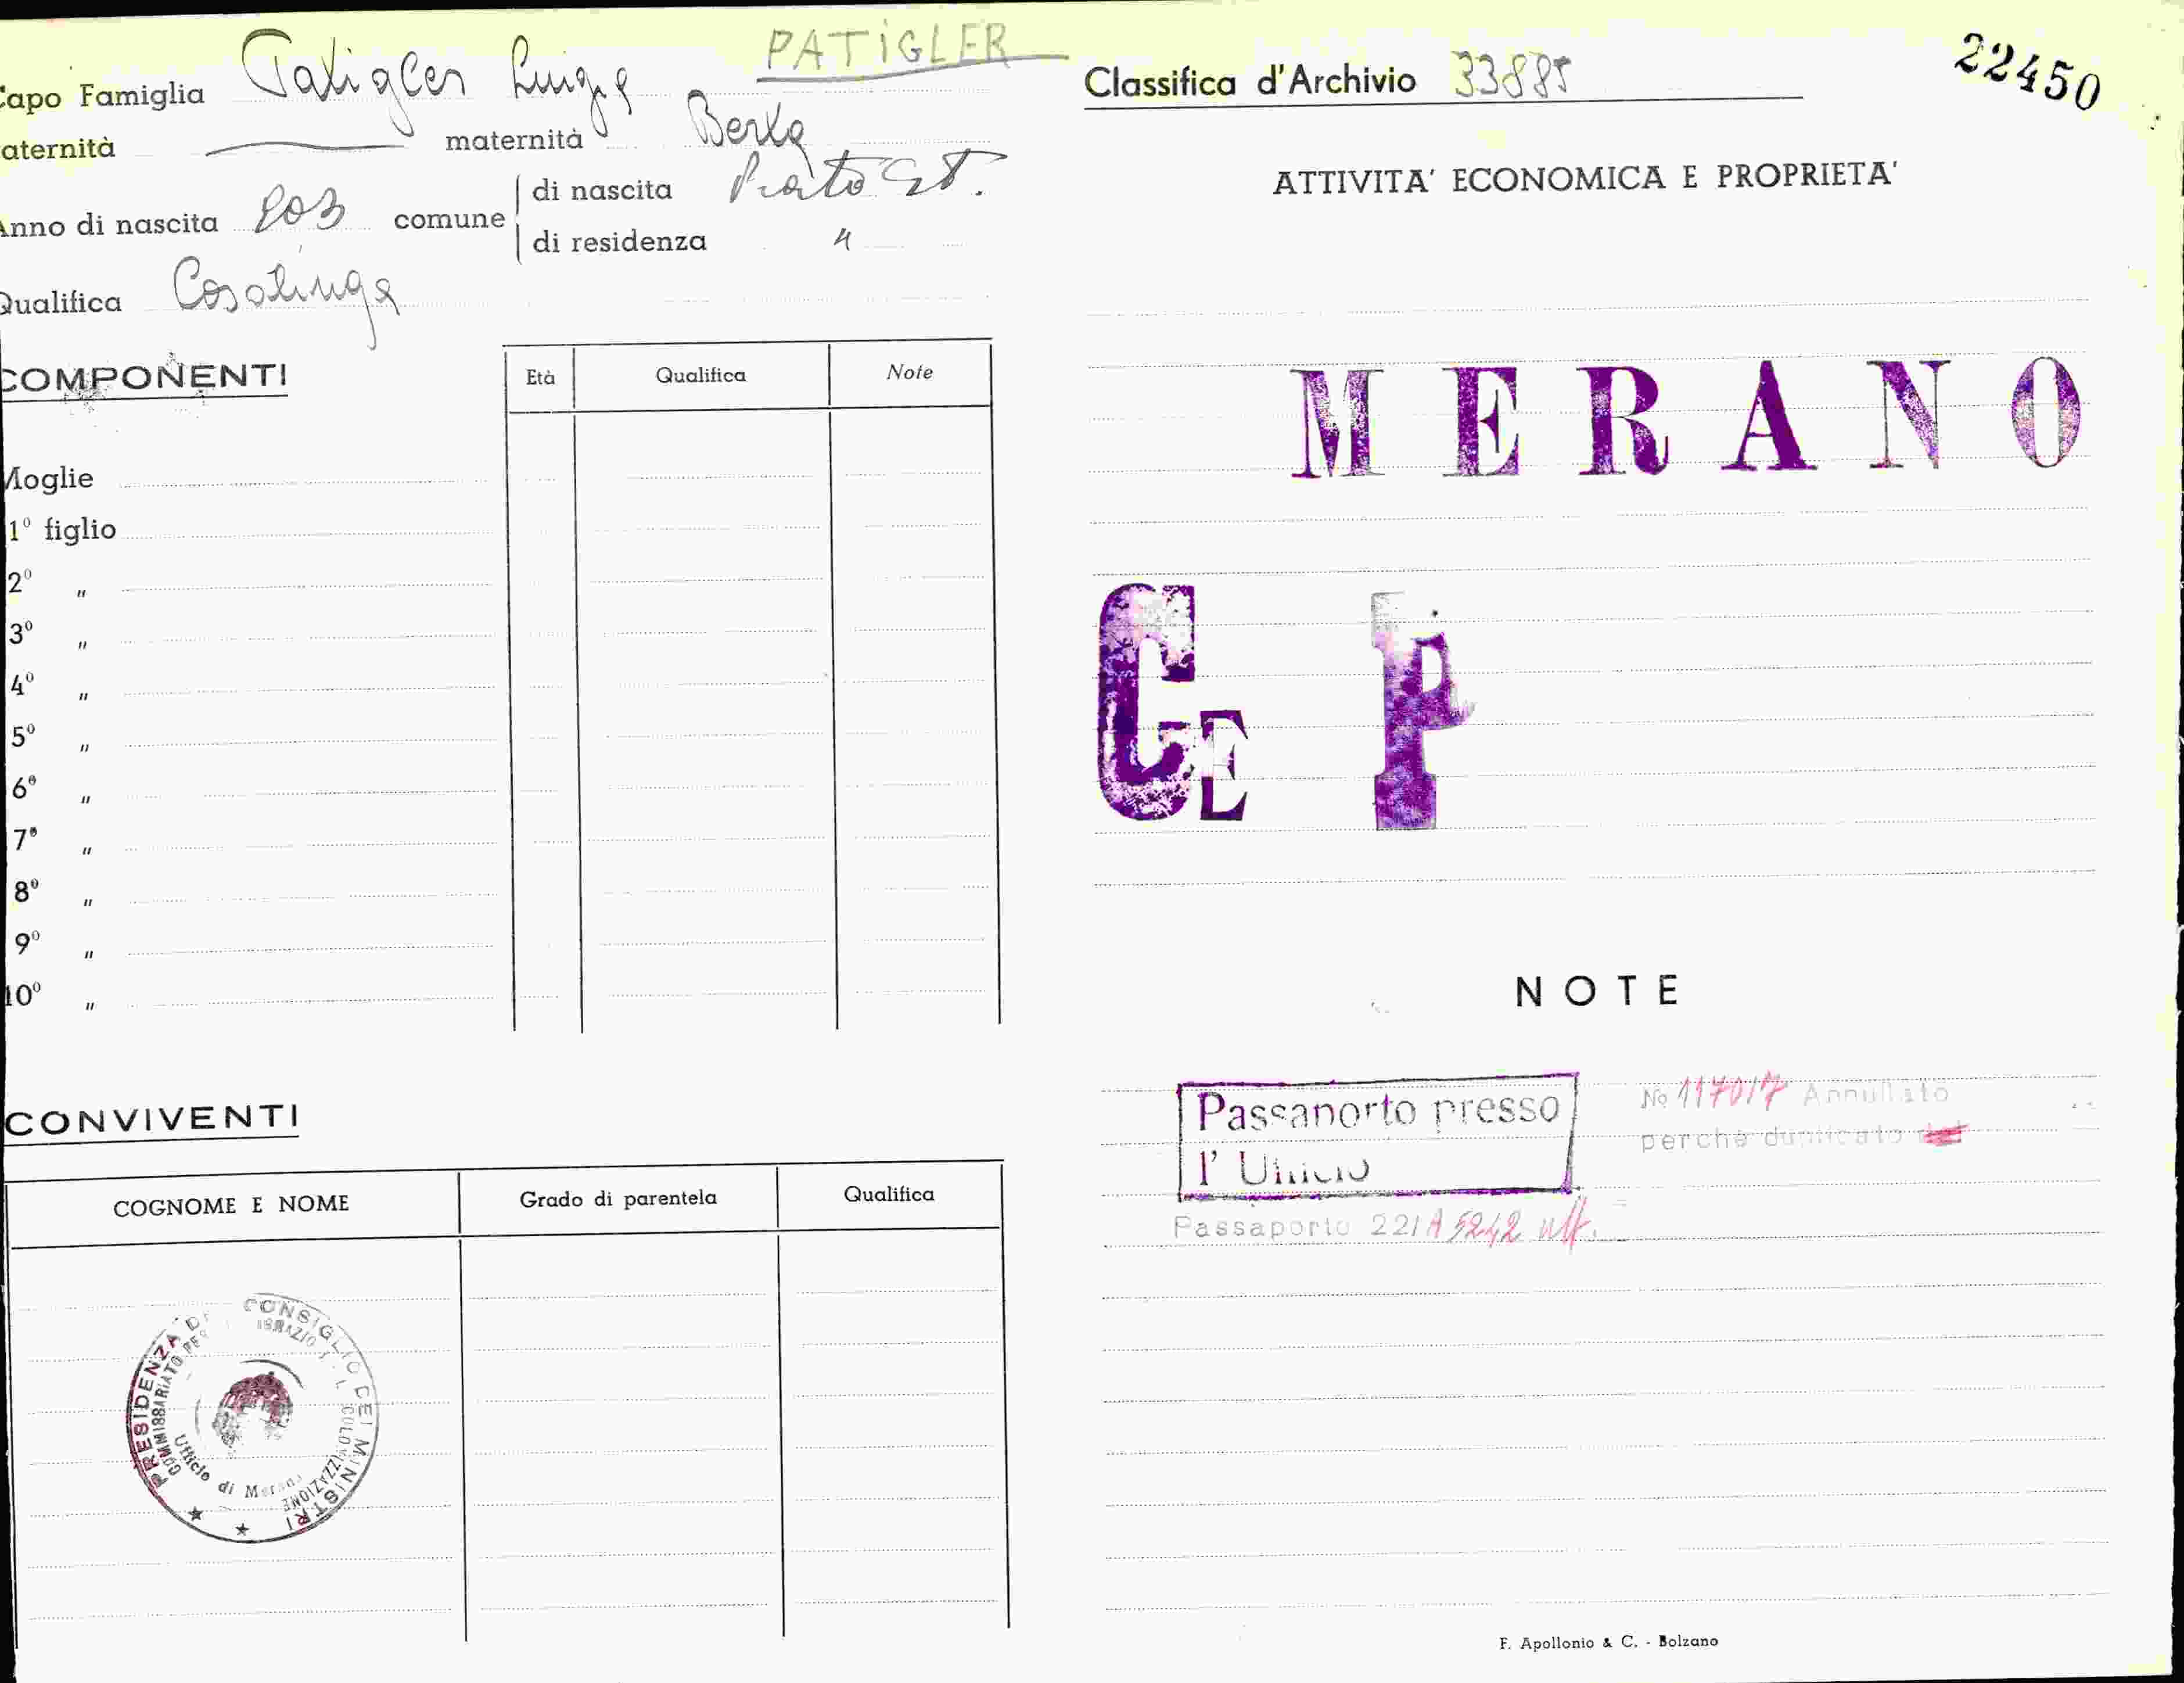 PATIGLER
Capo Famiglia Patigler Luigia
paternità — maternità Berta
Anno di nascita 903 comune di nascita Prato St.
di residenza "
Qualifica Casalinga
COMPONENTI
Età Qualifica Note
Moglie
1º figlio
2º "
3º "
4º "
5º "
6º "
7º "
8º "
9º "
10º "
CONVIVENTI
COGNOME E NOME Grado di parentela Qualifica
PRESIDENZA DEL CONSIGLIO DEI MINISTRI
COMMISSARIATO PER MIGRAZIONI COLONIZZAZIONE
Ufficio di Merano
Classifica d'Archivio 33885
22450
ATTIVITA' ECONOMICA E PROPRIETA'
MERANO
CE F
NOTE
Passaporto presso
l' Ufficio
No 117017 Annullato
perchè duplicato
Passaporto 221A 5242
F. Apollonio & C. - Bolzano